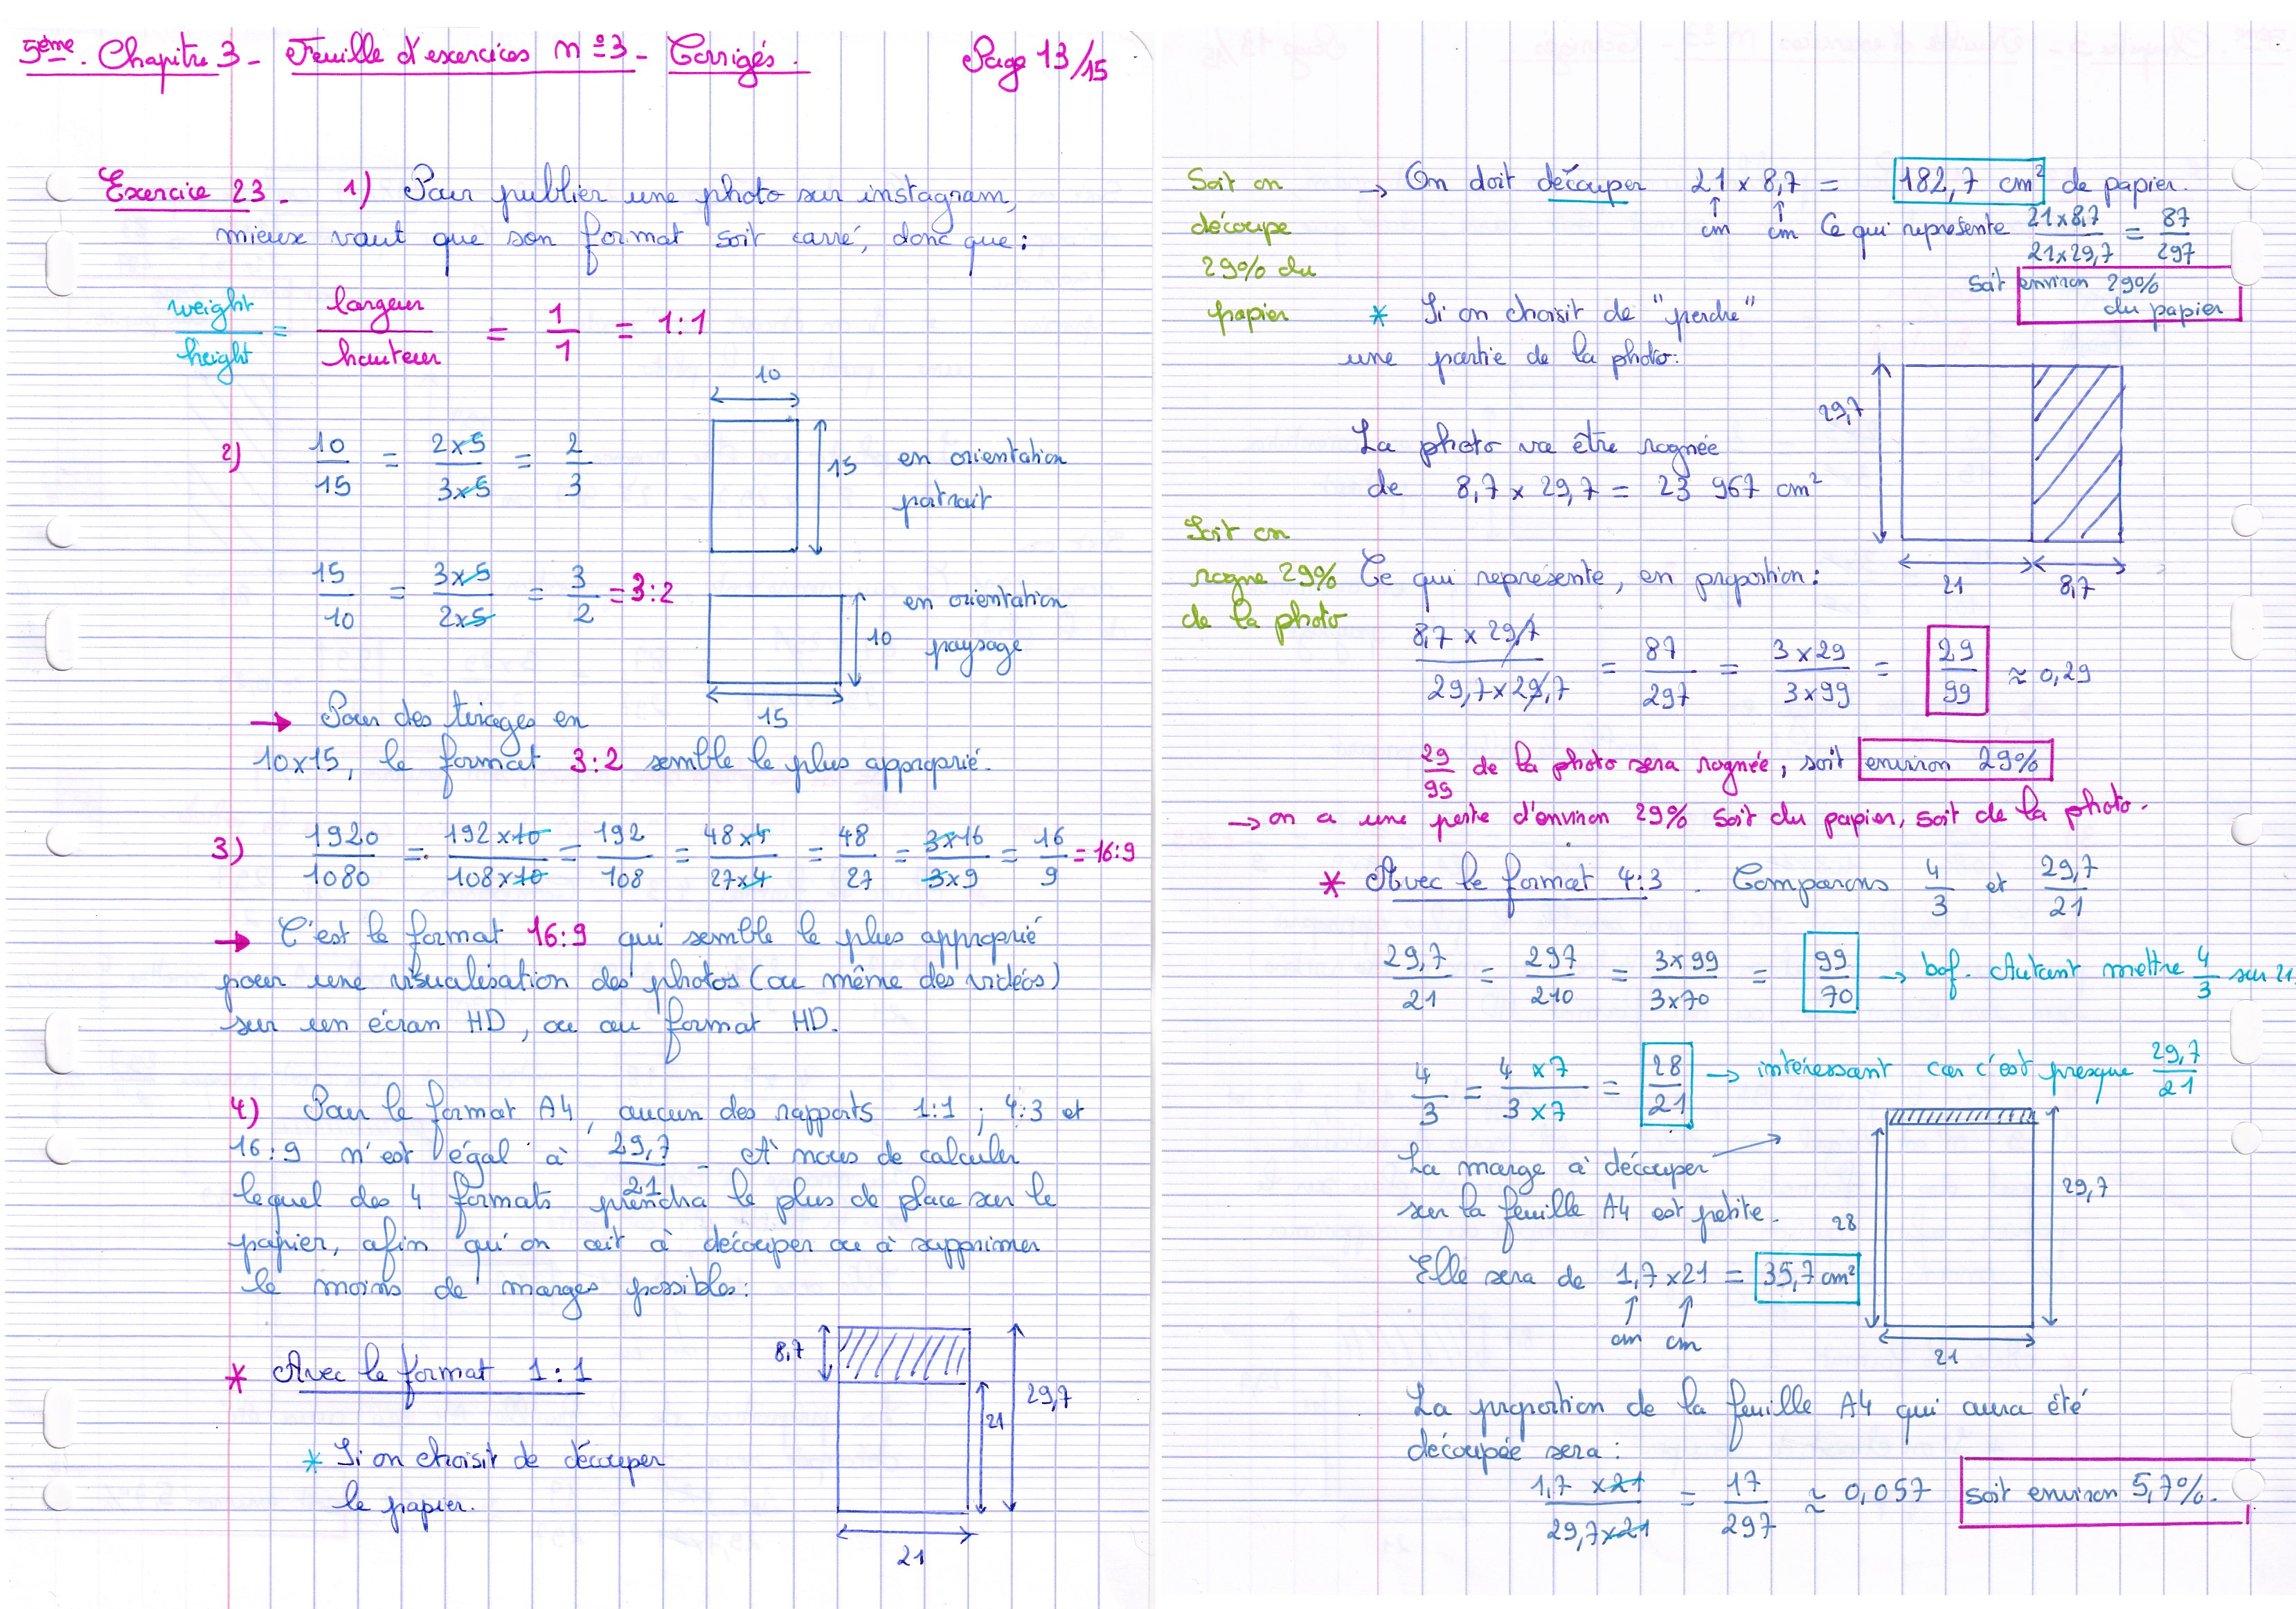 5ème. Chapitre 3 - Feuille d'exercices n°3 - Corrigés. Page 13/15
Exercice 23. 1) Pour publier une photo sur instagram,
mieux vaut que son format soit carré, donc que :
weight/height = largeur/hauteur = 1/1 = 1:1
10
2) 10/15 = 2x5/3x5 = 2/3
15 en orientation
portrait
15/10 = 3x5/2x5 = 3/2 = 3:2
en orientation
10 paysage
15
→ Pour des tirages en
10x15, le format 3:2 semble le plus approprié.
3) 1920/1080 = 192x10/108x10 = 192/108 = 48x4/27x4 = 48/27 = 3x16/3x9 = 16/9 = 16:9
→ C'est le format 16:9 qui semble le plus approprié
pour une visualisation des photos (ou même des vidéos)
sur un écran HD, ou au format HD.
4) Pour le format A4, aucun des rapports 1:1 ; 4:3 et
16:9 n'est égal à 29,7/21. A nous de calculer
lequel des 4 formats prendra le plus de place sur le
papier, afin qu'on ait à découper ou à supprimer
le moins de marges possibles :
* Avec le format 1:1
8,7
29,7
21
* Si on choisit de découper
le papier.
21
Soit on
découpe
29% du
papier
→ On doit découper 21 x 8,7 = 182,7 cm² de papier.
↑ cm ↑ cm Ce qui représente 21x8,7/21x29,7 = 87/297
soit environ 29%
du papier
* Si on choisit de "perdre"
une partie de la photo :
29,7
La photo va être rognée
de 8,7 x 29,7 = 23 967 cm²
21 8,7
Soit on
rogne 29%
de la photo
Ce qui représente, en proportion :
8,7 x 29,7/29,7x29,7 = 87/297 = 3x29/3x99 = 29/99 ≈ 0,29
29/99 de la photo sera rognée, soit environ 29%
→ on a une perte d'environ 29% soit du papier, soit de la photo.
* Avec le format 4:3. Comparons 4/3 et 29,7/21
29,7/21 = 297/210 = 3x99/3x70 = 99/70 → bof. Autant mettre 4/3 sur 21
4/3 = 4x7/3x7 = 28/21 → intéressant car c'est presque 29,7/21
La marge à découper
sur la feuille A4 est petite.
28
29,7
Elle sera de 1,7 x21 = 35,7 cm²
↑ cm ↑ cm
21
La proportion de la feuille A4 qui aura été
découpée sera :
1,7 x21/29,7x21 = 17/297 ≈ 0,057 soit environ 5,7%.